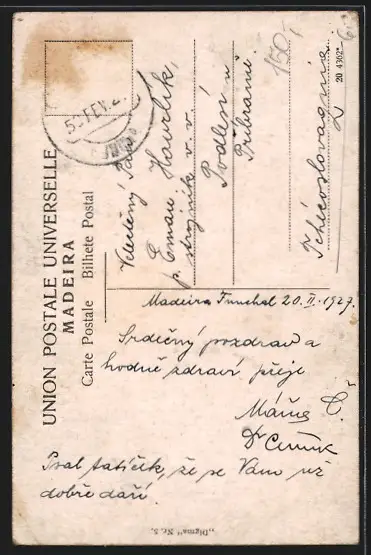 UNION POSTALE UNIVERSELLE
MADEIRA
Carte Postale Bilhete Postal
FEV. 2
Velectěný Pan
p. Eman Havrlík,
strojník v. v.
Podlesí u
Příbramě.
Tchécoslovaquie
150,-
20 4362*
Madeira Funchal 20. II. 1927.
Srdečný pozdrav a
hodně zdraví přeje
Psal tatíček, že se Vám už
dobře daří.
„Digma" Nr. 5.